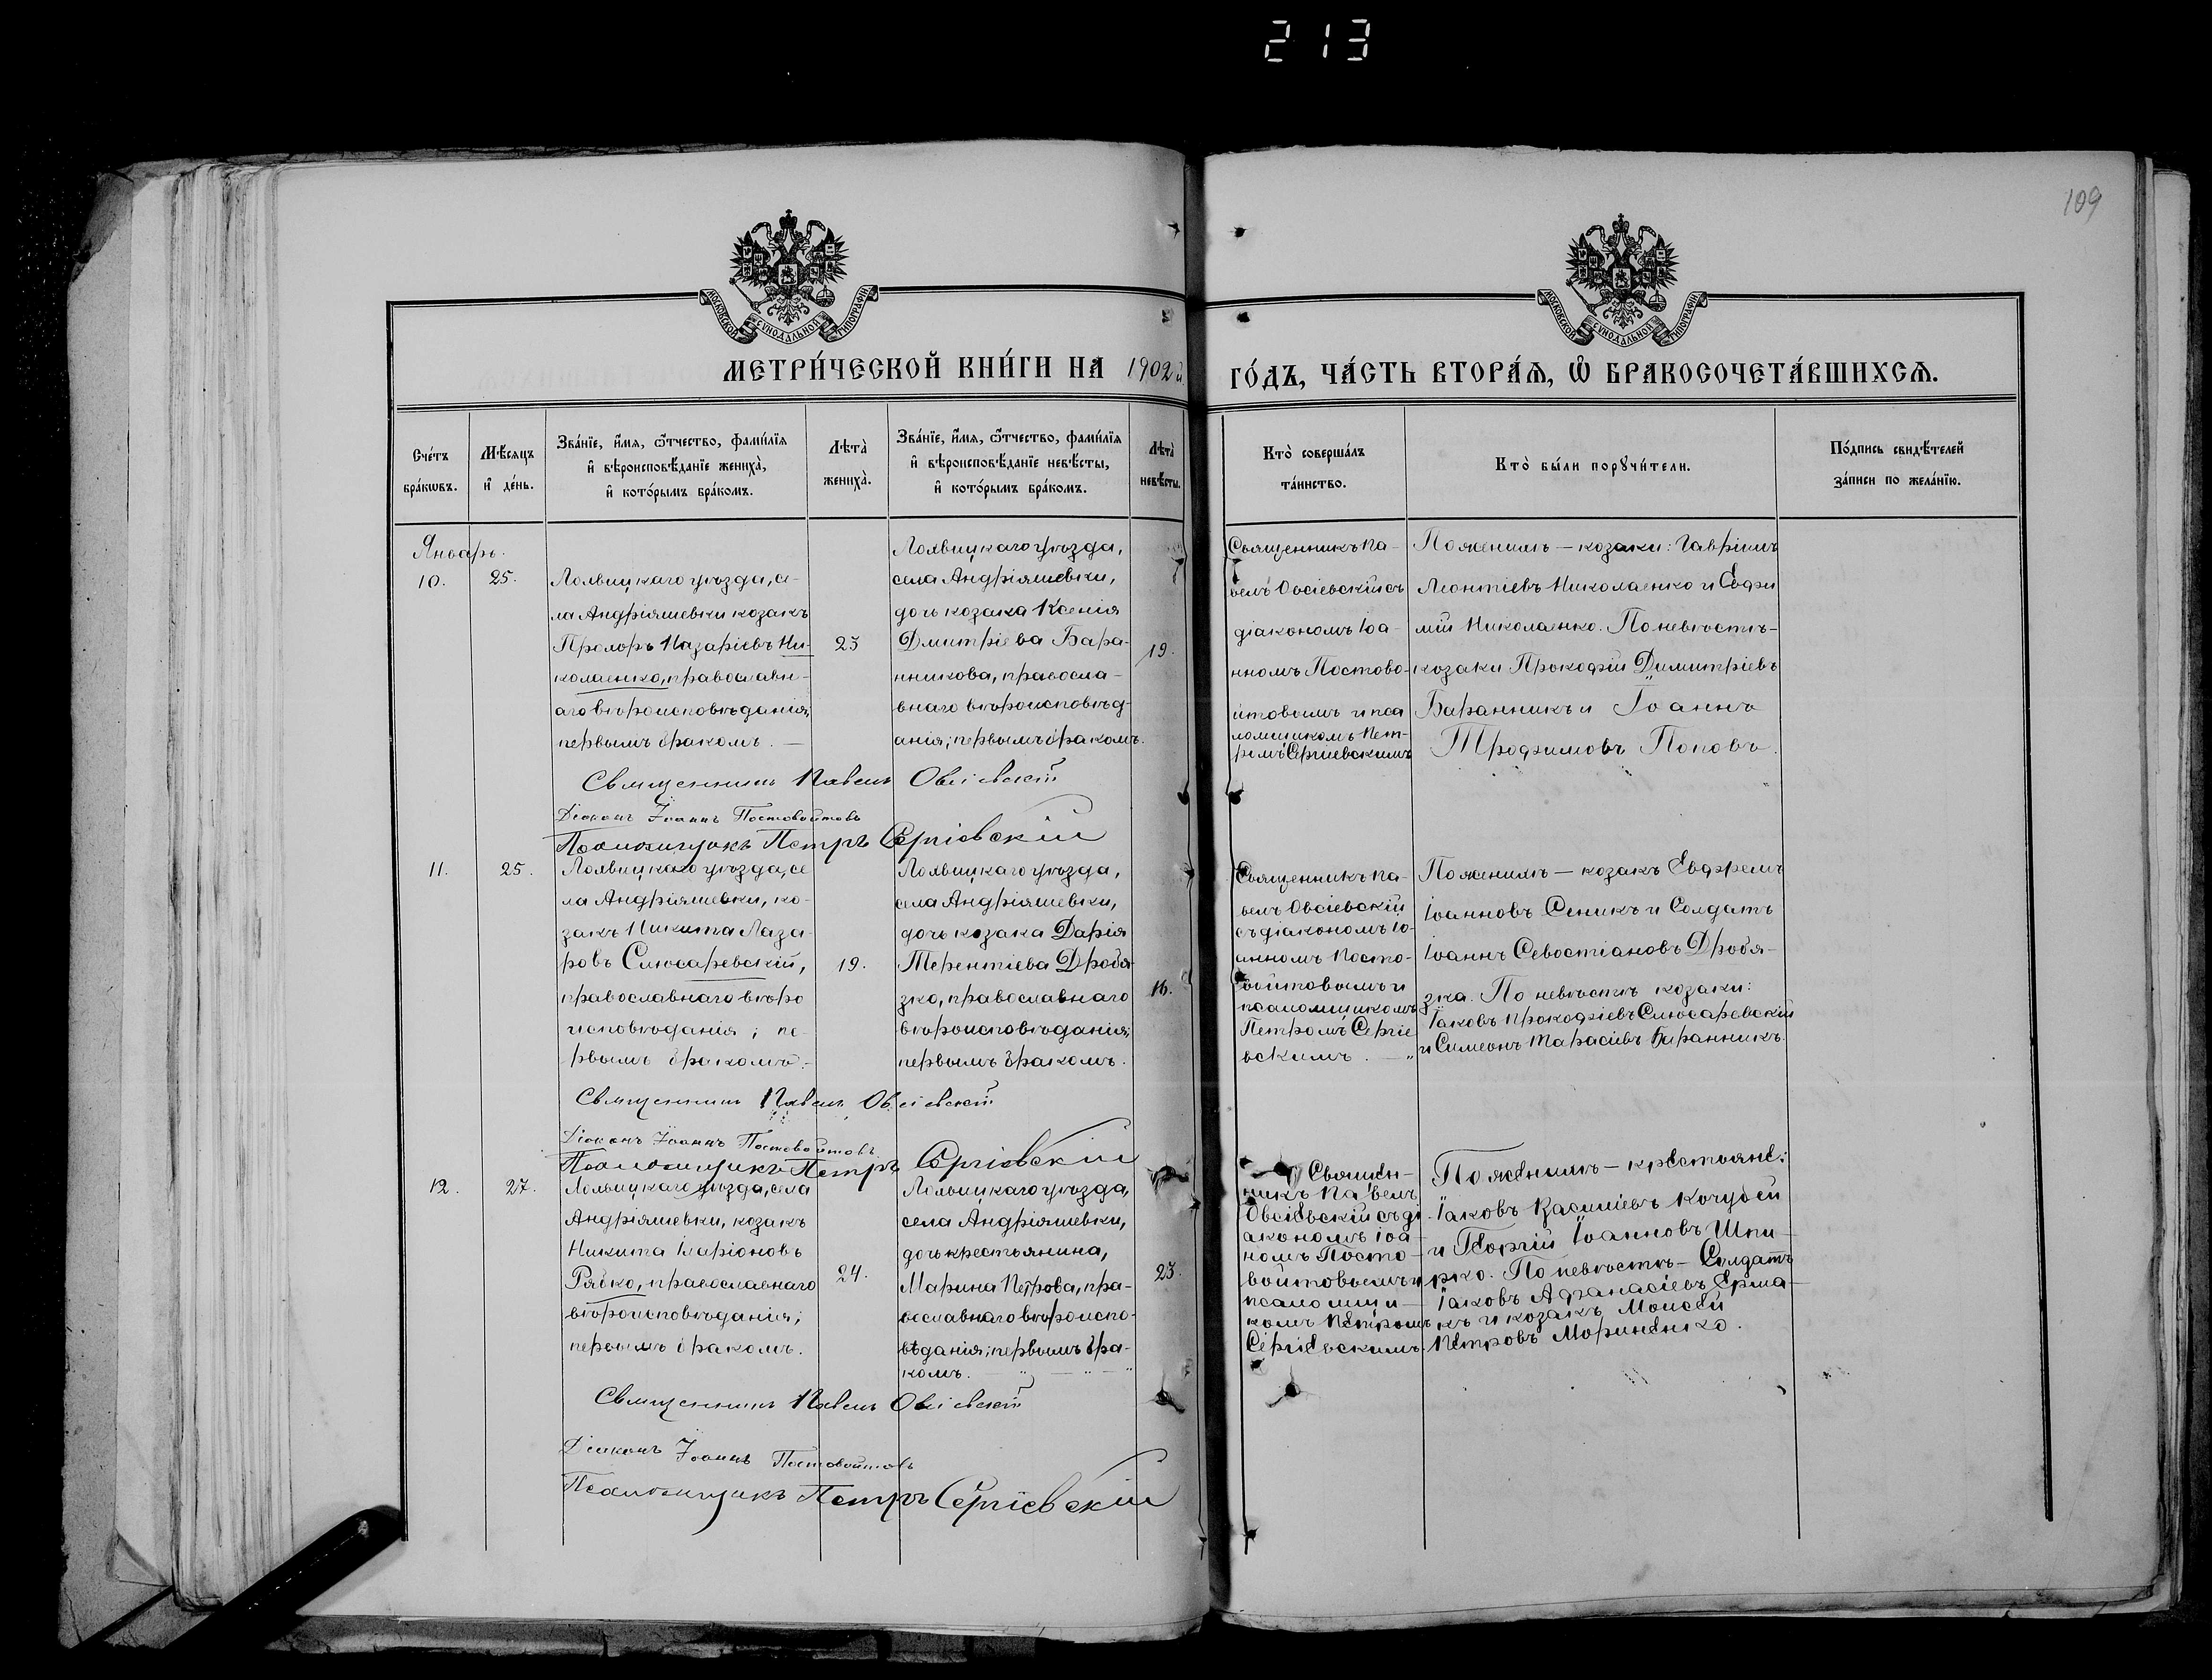 213
109
МОСКОВСКОЙ СУНОДАЛЬНОЙ ТИПОГРАФІИ
МОСКОВСКОЙ СУНОДАЛЬНОЙ ТИПОГРАФІИ
МЕТРИ́ЧЕСКОЙ КНИ́ГИ НА 1902й
ГО́ДЪ, ЧА́СТЬ ВТОРА́Ѧ, Ѡ҆ БРАКОСОЧЕТА́ВШИХСѦ.
Сче́тъ
бра́кѡвъ.
Мѣ́сяцъ
и҆ де́нь.
Зва́нїе, и҆́мѧ, ѻ҆́тчество, фами́лїѧ
и҆ вѣроисповѣ́данїе жениха̀,
и҆ кото́рымъ бра́комъ.
Лѣта̀
жениха̀.
Зва́нїе, и҆́мѧ, ѻ҆́тчество, фами́лїѧ
и҆ вѣроисповѣ́данїе невѣ́сты,
и҆ кото́рымъ бра́комъ.
Лѣта̀
невѣ́сты.
Кто̀ совершáлъ
та́инство.
Кто̀ бы́ли порꙋчи́тели.
По́дпись свидѣ́телей
за́писи по жела́нїю.
Январь.
10.
25.
Лохвицкаго уѣзда, се-
ла Андріяшевки козакъ
Прохоръ Назаріевъ Ни-
колаенко, православн-
аго вѣроисповѣданія,
первымъ бракомъ. —
23
Лохвицкаго уѣзда,
села Андріяшевки,
дочь козака Ксенія
Дмитріева Бара-
нникова, правосла-
внаго вѣроисповѣд-
анія; первымъ бракомъ.
19.
Священникъ Па-
велъ Овсіевскій съ
діакономъ Іоа-
нномъ Постово-
йтовымъ и пса
ломщикомъ Пет-
ромъ Сергіевскимъ
По женихѣ — козаки: Гавріилъ
Леонтіевъ Николаенко и Евфи
мій Николаенко. По невѣстѣ —
козаки Прокофій Димитріевъ
Баранникъ и Іоаннъ
Трофимовъ Поповъ.
Священникъ Павелъ Овсіевскій
Діаконъ Іоаннъ Постовойтовъ
Псаломщикъ Петръ Сергіевскій
11.
25.
Лохвицкаго уѣзда, се
ла Андріяшевки, ко-
закъ Никита Лаза-
ровъ Слюсаревскій,
православнаго вѣро
исповѣданія; пе-
рвымъ бракомъ.
19.
Лохвицкаго уѣзда,
села Андріяшевки,
дочь козака Дарія
Терентіева Дробя-
зко, православнаго
вѣроисповѣданія;
первымъ бракомъ.
16.
Священникъ Па-
велъ Овсіевскій
съ діакономъ Іо-
анномъ Посто-
войтовымъ и
псаломщикомъ
Петромъ Сергіе
вскимъ. — „
По женихѣ — козакъ Евфремъ
Іоанновъ Сеникъ и Солдатъ
Іоаннъ Севостіановъ Дробя-
зка. По невѣстѣ козаки:
Іаковъ Прокофіевъ Слюсаревскій
и Симеонъ Тарасіевъ Баранникъ.
Священникъ Павелъ Овсіевскій
Діаконъ Іоаннъ Постовойтовъ
Псаломщикъ Петръ Сергіевскій
12.
27.
Лохвицкаго уѣзда, села
Андріяшевки, козакъ
Никита Іларіоновъ
Рябко, православнаго
вѣроисповѣданія;
первымъ бракомъ.
24.
Лохвицкаго уѣзда,
села Андріяшевки,
дочь крестьянина,
Марина Петрова, пра-
вославнаго вѣроиспо-
вѣданія; первымъ бра-
комъ. — „ — „ — „
23.
Священ-
никъ Павелъ
Овсіевскій съ ді-
акономъ Іоа-
номъ Посто-
войтовымъ и
псаломщи-
комъ Петромъ
Сергіевскимъ.
По женихѣ — крестьяне:
Іаковъ Касиніевъ Кочубей
и Георгій Іоанновъ Шпи-
рко. По невѣстѣ — Солдатъ
Іаковъ Афанасіевъ Ерма-
къ и козакъ Моисей
Петровъ Мориненко.
Священникъ Павелъ Овсіевскій
Діаконъ Іоаннъ Постовойтовъ
Псаломщикъ Петръ Сергіевскій